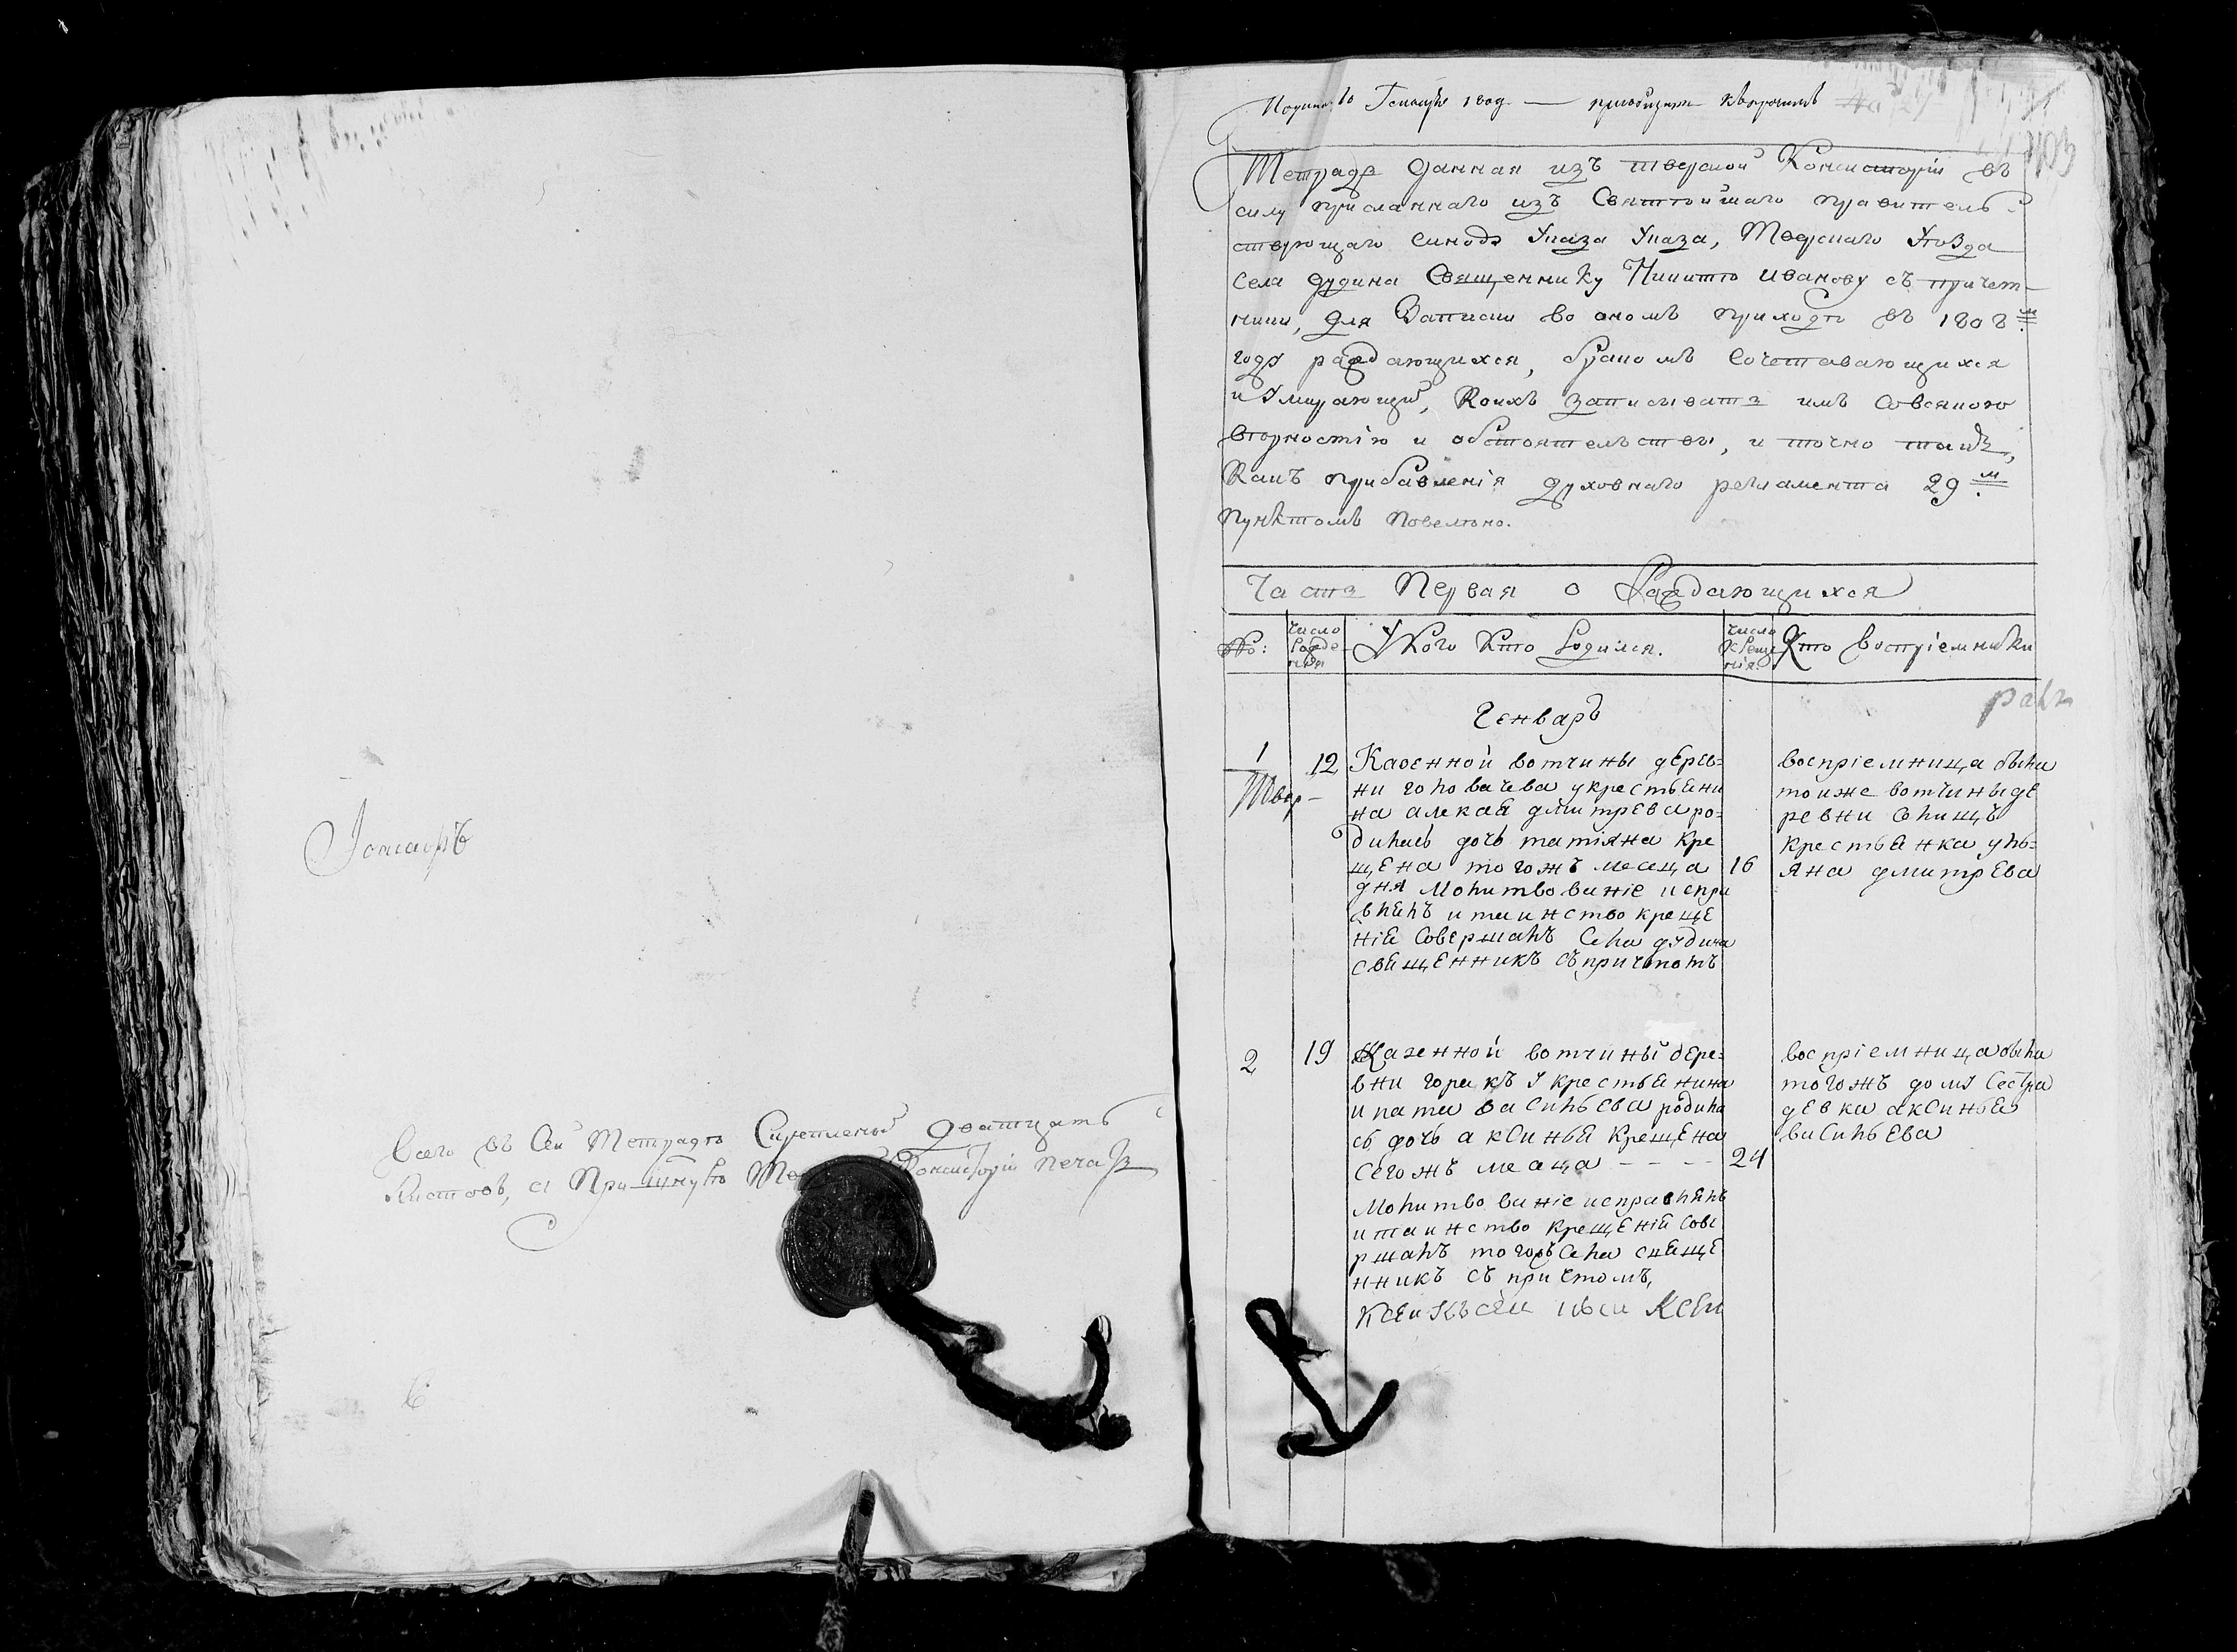 Всего въ Сей Тетрадѣ Скрепленыхъ дватцать
листовъ, а При шнурѣ Консисторіи печать
Тетрадь данная изъ тверской Консисторіи въ
силу присланнаго изъ Святѣйшаго правитель-
ствующаго Синода Указа Указа, Тверскаго Уѣзда
Села дудина Священнику Никитѣ Иванову съ причет-
ники, для Записки во ономъ приходѣ въ 1808м
годъ раждающихся, бракомъ Сочетавающихся
и Умирающихъ, Коихъ записывать имъ Совсякою
вѣрностію и обстоятельствы, и точно такъ,
Какъ прибавленія духовнаго регламента 29м
пунктомъ повелѣно.
Часть Первая о Раждающихся
№: Число Рожденія У Кого Кто Родился. Число Крещенія Кто Воспріемники
Генварь
1 12 Казенной вотчины дерев-
ни головачева укрестьяни
на алексѣя дмитрева ро-
дилась дочь татіяна Кре
щена тогожъ месяца 16
дня Молитвование испра
влялъ и таинство креще
нія Совершалъ Села дудина
священникъ съ причтомъ
воспріемница была
тоиже вотчины де
ревни Селищъ
крестьянка улья-
яна дмитрева
2 19 Казенной вотчины дере-
вни горакъ у крестьянина
ипата васильева родила
сь дочь аксинья Крещена
сегожъ месяца - - - - 24
Молитвование исправлялъ
и таинство крещенія Сове
ршалъ тогожъ Села свяще
нникъ съ причтомъ,
воспріемница была
тогожъ дому Сестра
девка аксинья
васильева